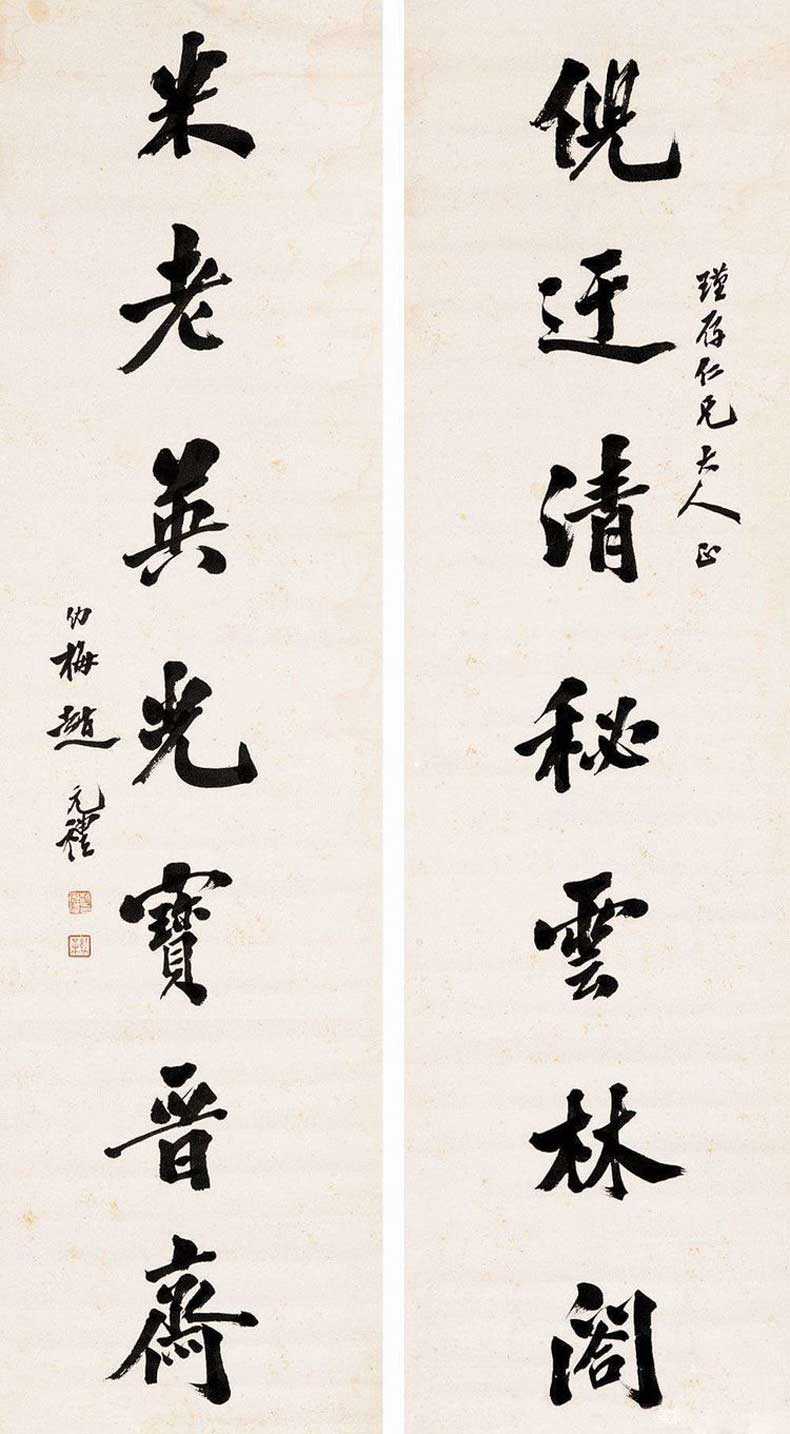 瑾存仁兄大人正
倪迂清秘雲林閣
米老英光寶晉齋
幼梅趙元禮